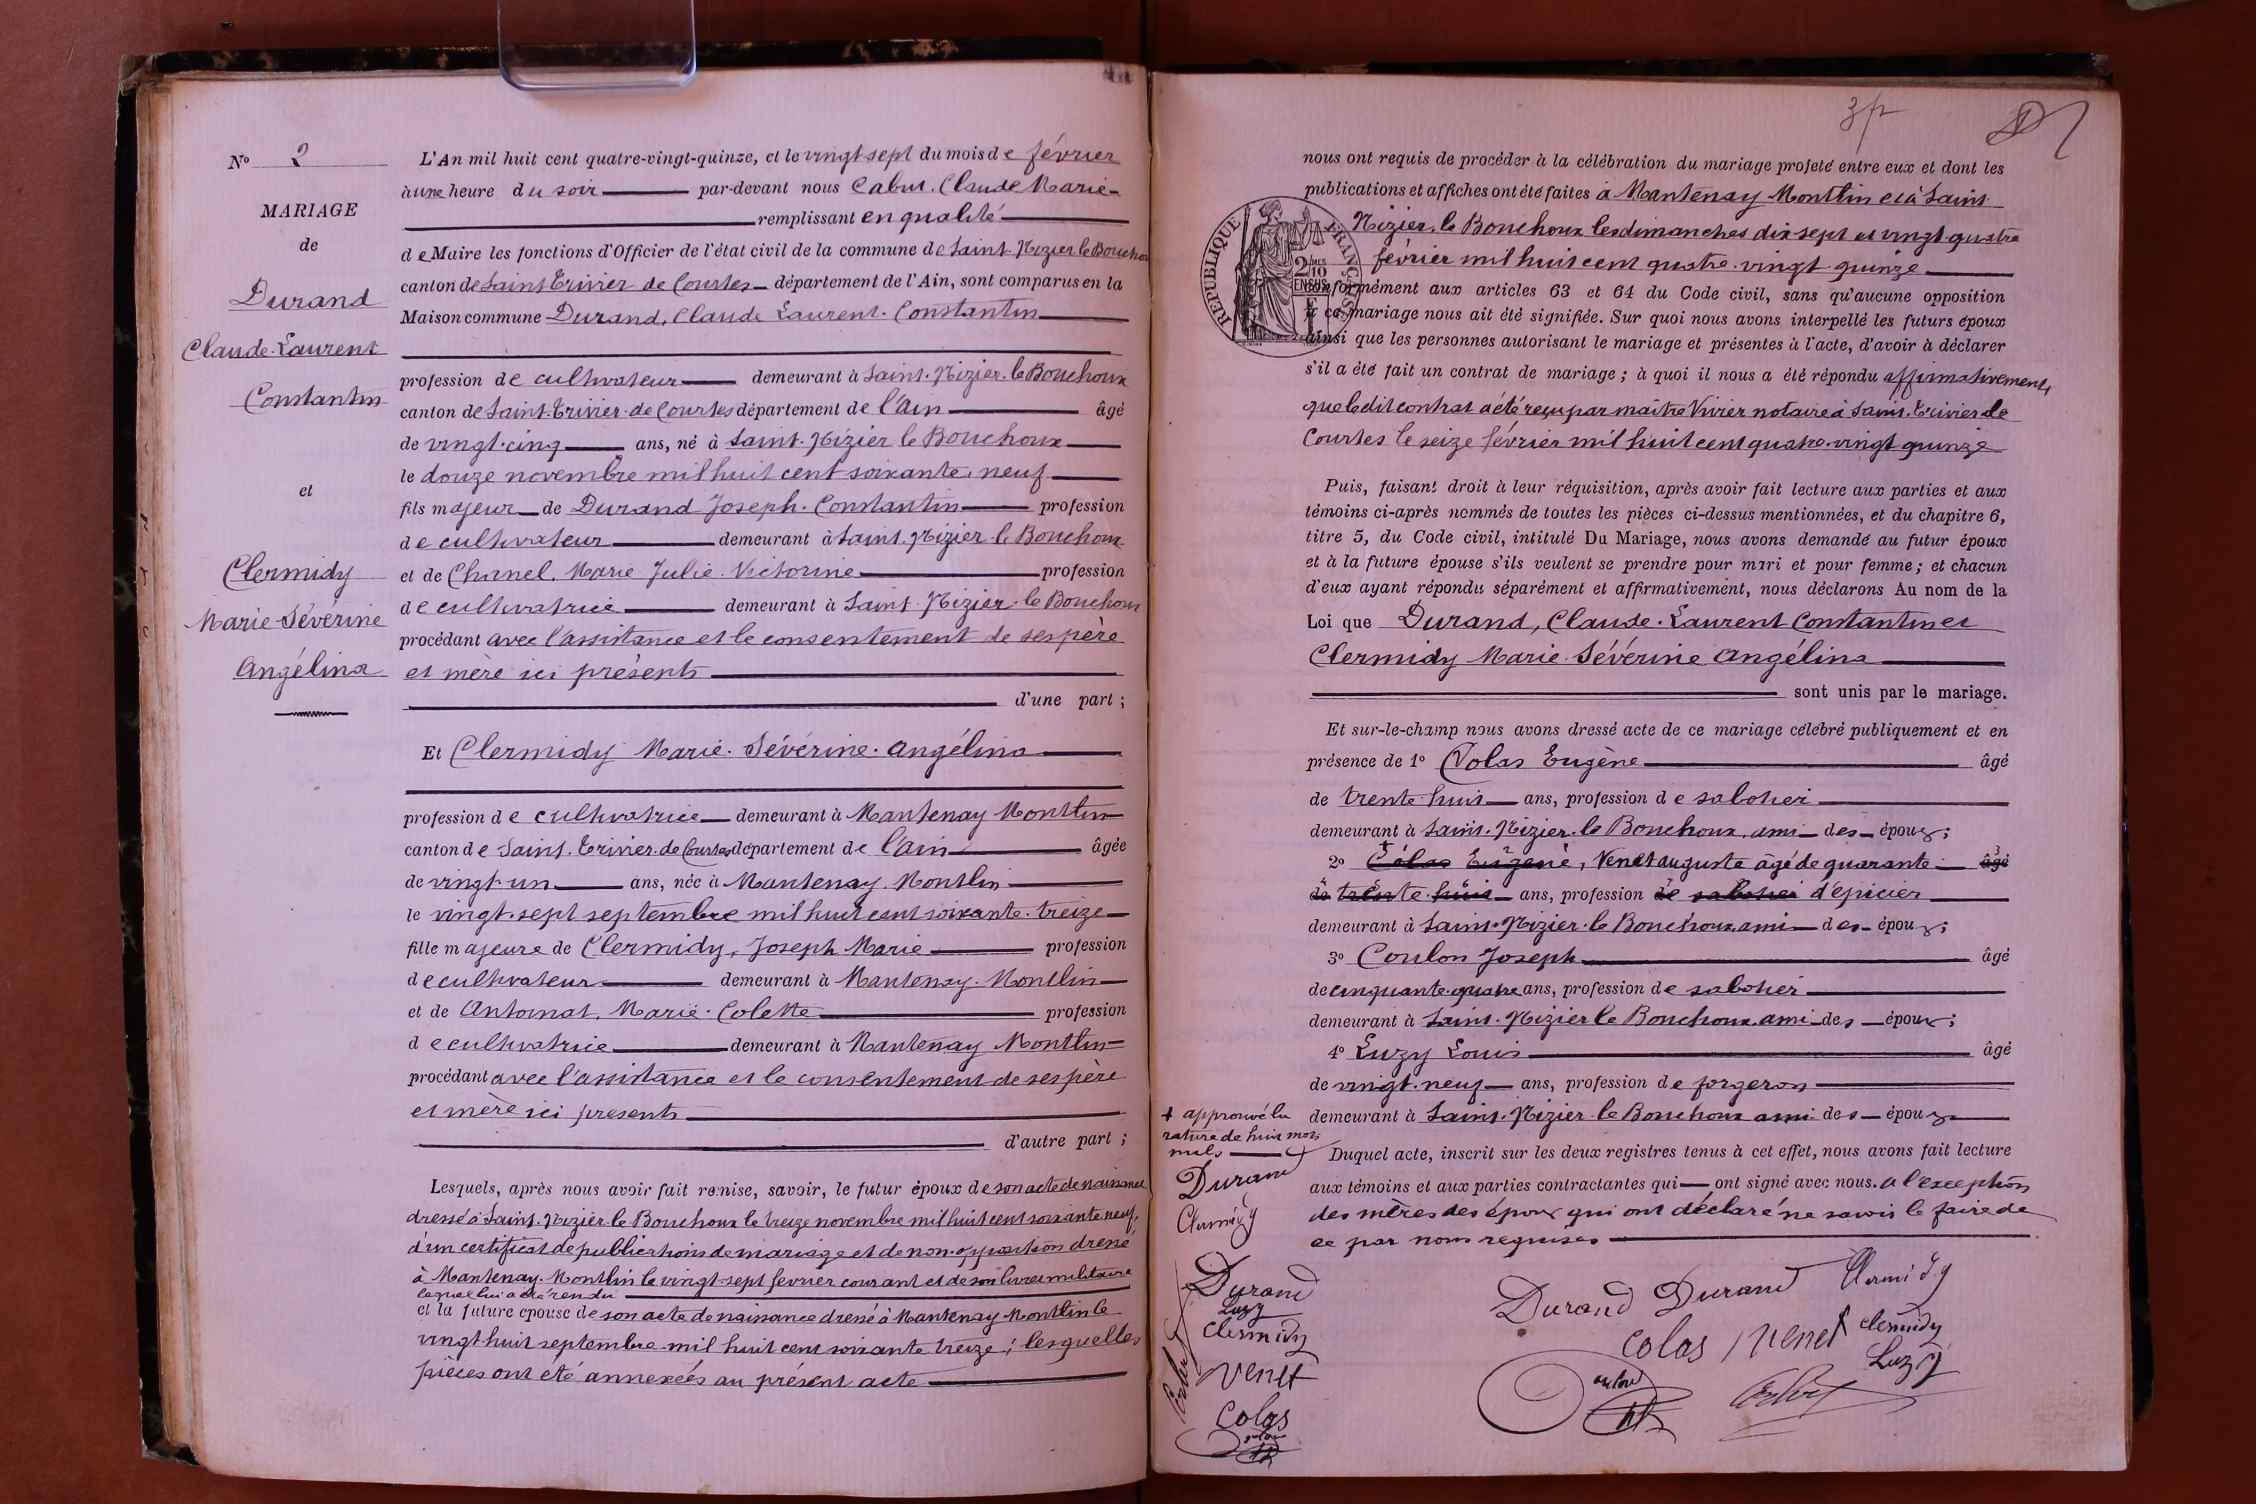 Nº 2
MARIAGE
de
Durand
Claude-Laurent
Constantin
et
Clermidy
Marie-Sévérine
Angélina
L'An mil huit cent quatre-vingt-quinze, et le vingt-sept du mois de février
à une heure du soir par-devant nous Cabut. Claude Marie
remplissant en qualité
de Maire les fonctions d'Officier de l'état civil de la commune de Saint-Nizier le Bouchoux
canton de Saint Trivier de Courtes département de l'Ain, sont comparus en la
Maison commune Durand, Claude Laurent. Constantin
profession de cultivateur demeurant à Saint-Nizier-le Bouchoux
canton de Saint-Trivier-de Courtes département de l'Ain âgé
de vingt-cinq ans, né à Saint-Nizier le Bouchoux
le douze novembre mil huit cent soixante-neuf
fils majeur de Durand Joseph. Constantin profession
de cultivateur demeurant à Saint-Nizier-le Bouchoux
et de Chanel. Marie Julie Victorine profession
de cultivatrice demeurant à Saint-Nizier-le Bouchoux
procédant avec l'assistance et le consentement de ses père
et mère ici présents
d'une part ;
Et Clermidy Marie-Sévérine-Angélina
profession de cultivatrice demeurant à Mantenay Montlin
canton de Saint-Trivier-de Courtes département de l'Ain âgée
de vingt-un ans, née à Mantenay Montlin
le vingt-sept septembre mil huit cent soixante-treize
fille majeure de Clermidy, Joseph Marie profession
de cultivateur demeurant à Mantenay-Montlin
et de Antoinat. Marie-Colette profession
de cultivatrice demeurant à Mantenay Montlin
procédant avec l'assistance et le consentement de ses père
et mère ici presents
d'autre part ;
Lesquels, après nous avoir fait remise, savoir, le futur époux de son acte de naissance
dressé à Saint-Nizier-le Bouchoux le treize novembre mil huit cent soixante-neuf,
d'un certificat de publications de mariage et de non-opposition dressé
à Mantenay-Montlin le vingt-sept fevrier courant et de son livret militaire
lequel lui a été rendu
et la future épouse de son acte de naissance dressé à Mantenay Montlin le
vingt huit septembre mil huit cent soixante treize ; lesquelles
pièces ont été annexées au présent acte
nous ont requis de procéder à la célébration du mariage projeté entre eux et dont les
publications et affiches ont été faites à Mantenay Montlin et à Saint
Nizier-le Bouchoux les dimanches dix sept et vingt quatre
février mil huit cent quatre-vingt-quinze
RÉPUBLIQUE FRANÇAISE
2/10
EN SUS
conformément aux articles 63 et 64 du Code civil, sans qu'aucune opposition
à ce mariage nous ait été signifiée. Sur quoi nous avons interpellé les futurs époux
ainsi que les personnes autorisant le mariage et présentes à l'acte, d'avoir à déclarer
s'il a été fait un contrat de mariage ; à quoi il nous a été répondu affirmativement,
que ledit contrat a été reçu par maître Vivier notaire à Saint-Trivier de
Courtes le seize février mil huit cent quatre-vingt quinze
Puis, faisant droit à leur réquisition, après avoir fait lecture aux parties et aux
témoins ci-après nommés de toutes les pièces ci-dessus mentionnées, et du chapitre 6,
titre 5, du Code civil, intitulé Du Mariage, nous avons demandé au futur époux
et à la future épouse s'ils veulent se prendre pour mari et pour femme ; et chacun
d'eux ayant répondu séparément et affirmativement, nous déclarons Au nom de la
Loi que Durand, Claude-Laurent Constantin et
Clermidy Marie-Sévérine Angélina
sont unis par le mariage.
Et sur-le-champ nous avons dressé acte de ce mariage célébré publiquement et en
présence de 1º Colas Eugène âgé
de trente-huit ans, profession de sabotier
demeurant à Saint-Nizier-le Bouchoux, ami des époux ;
2º Colas Eugène, Venet auguste âgé de quarante âgé
de trente huit ans, profession de sabotier d'épicier
demeurant à Saint-Nizier-le Bouchoux, ami des époux ;
3º Coulon Joseph âgé
de cinquante-quatre ans, profession de sabotier
demeurant à Saint-Nizier le Bouchoux, ami des époux ;
4º Luzy Louis âgé
de vingt-neuf ans, profession de forgeron
demeurant à Saint-Nizier-le Bouchoux ami des époux
Duquel acte, inscrit sur les deux registres tenus à cet effet, nous avons fait lecture
aux témoins et aux parties contractantes qui ont signé avec nous. a l'exception
des mères des époux qui ont déclaré ne savoir le faire de
ce par nous requises
approuvé la
rature de huit mots
nuls
Durand
Clermidy
Durand
Luzy
Clermidy
Venet
Colas
Durand Durand Clermidy
Colas Venet Clermidy
Luzy